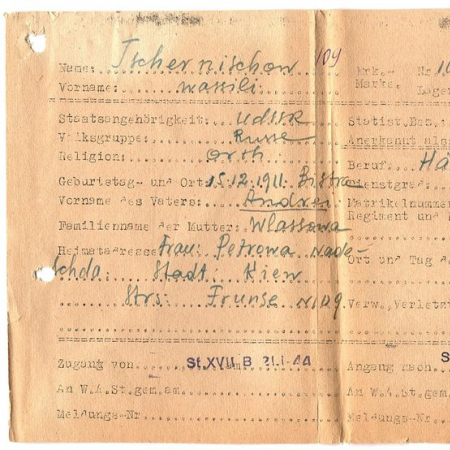 Name: Tschernischow 109 Erk.- Nr 10
Vorname: Wassili Marke. Lage
Staatsangehörigkeit: UdSSR Statist.Bez.
Volksgruppe: Russe Anerkannt als
Religion: orth Beruf Hä
Geburtstag- und Ort 15.12.1911. Bistra Dienstgrad
Vorname des Vaters: Andrei Matrikelnummer
Familienname der Mutter: Wlassowa Regiment und
Heimatadresse: Frau: Petrowa Nade-
schda: Stadt: Kiew Ort und Tag d
Strs: Frunse N:
Verw. Verletz
Zugang von St.XVII B 21.1.44 Abgang nach S
An W.A.St.gem.am An W.A.St.ge
Meldungs-Nr Meldungs-Nr.